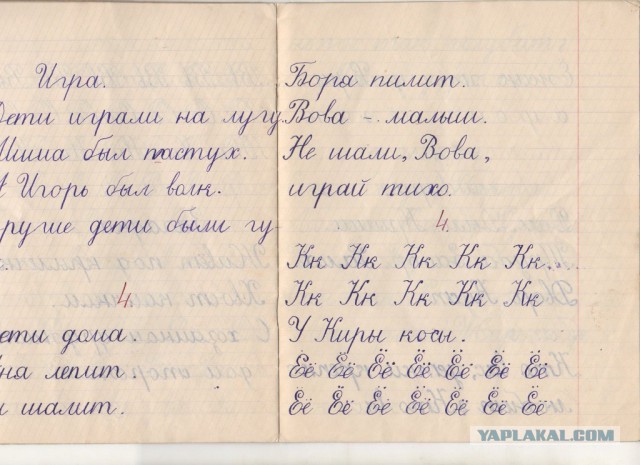 Игра.
Дети играли на лугу.
Миша был пастух.
А Игорь был волк.
другие дети были гу-
4
дети дома.
лепит.
шалит.
Боря пилит.
Вова – малыш.
Не шали, Вова,
играй тихо.
4
Кк Кк Кк Кк Кк.
Кк Кк Кк Кк Кк
У Киры косы.
Её Её Её Её Её Её Её
Её Её Её Её Её Её Её
YAPLAKAL.COM